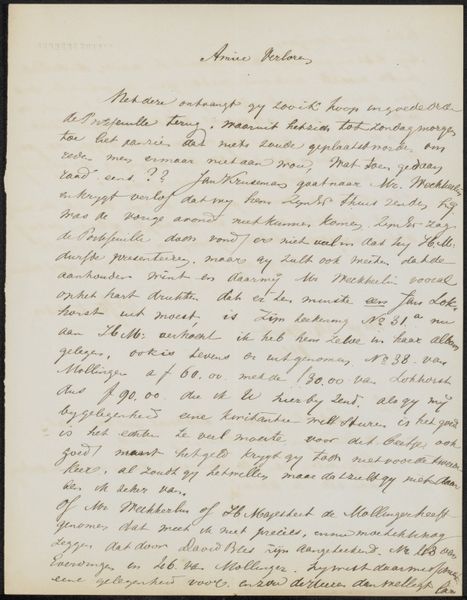 Amice Verloren
Met deze ontvangt gy zooik hoop in goede orde
de Portefeuille terug, waaruit het zich tot Zondag morgen
toe liet aanzien dat niets zoude geplaatst worden om
reden men er maar niet aan wou, Wat toen gedaan
eens! ?? Jan Kruseman gaat naar Mr. Weckherlin
en krygt verlof dat wy hem Zyn Ed t'huis zenden, hy
was de vorige avond niet kunnen komen, Zyn Ed zag
de Portefeuille door vond er niet veel in dat hy H.M.
durfde presenteren, maar gy zult ook weten dat de
aanhouder wint en daar wy Mr Weckherlin vooral
op het hart drukten dat er ten minste een Jan Lok-
horst uit moest is Zijn teekening No 31.a nu
aan H.M. verkocht ik heb hem zelve in haar album
gelegen, ook is tevens er uit genomen No 38. van
Mollinger a ƒ 60.00. met de ƒ 30.00 van Lokhorst
dus ƒ 90.00. die ik U hierby zend, als gy my
by gelegenheid eene kwitantie wilt sturen is het goed
is het echter te veel moeite voor dit beetje ook
goed! maar het geld krygt gy toch niet voor de tweede
keer, al zoudt gy het willen maar dat zult gy niet daar
ben ik zeker van.
Of Mr Weckherlin of H. Majesteit de Mollinger heeft
genomen dat weet ik niet precies, en nu moet ik U nog
zeggen dat door David Bles zijn aangeteekend. No 163 van
Everdingen en van Mollinger. Hy wist daar
eene gelegenheid voor, en zou derhalve dan wellicht